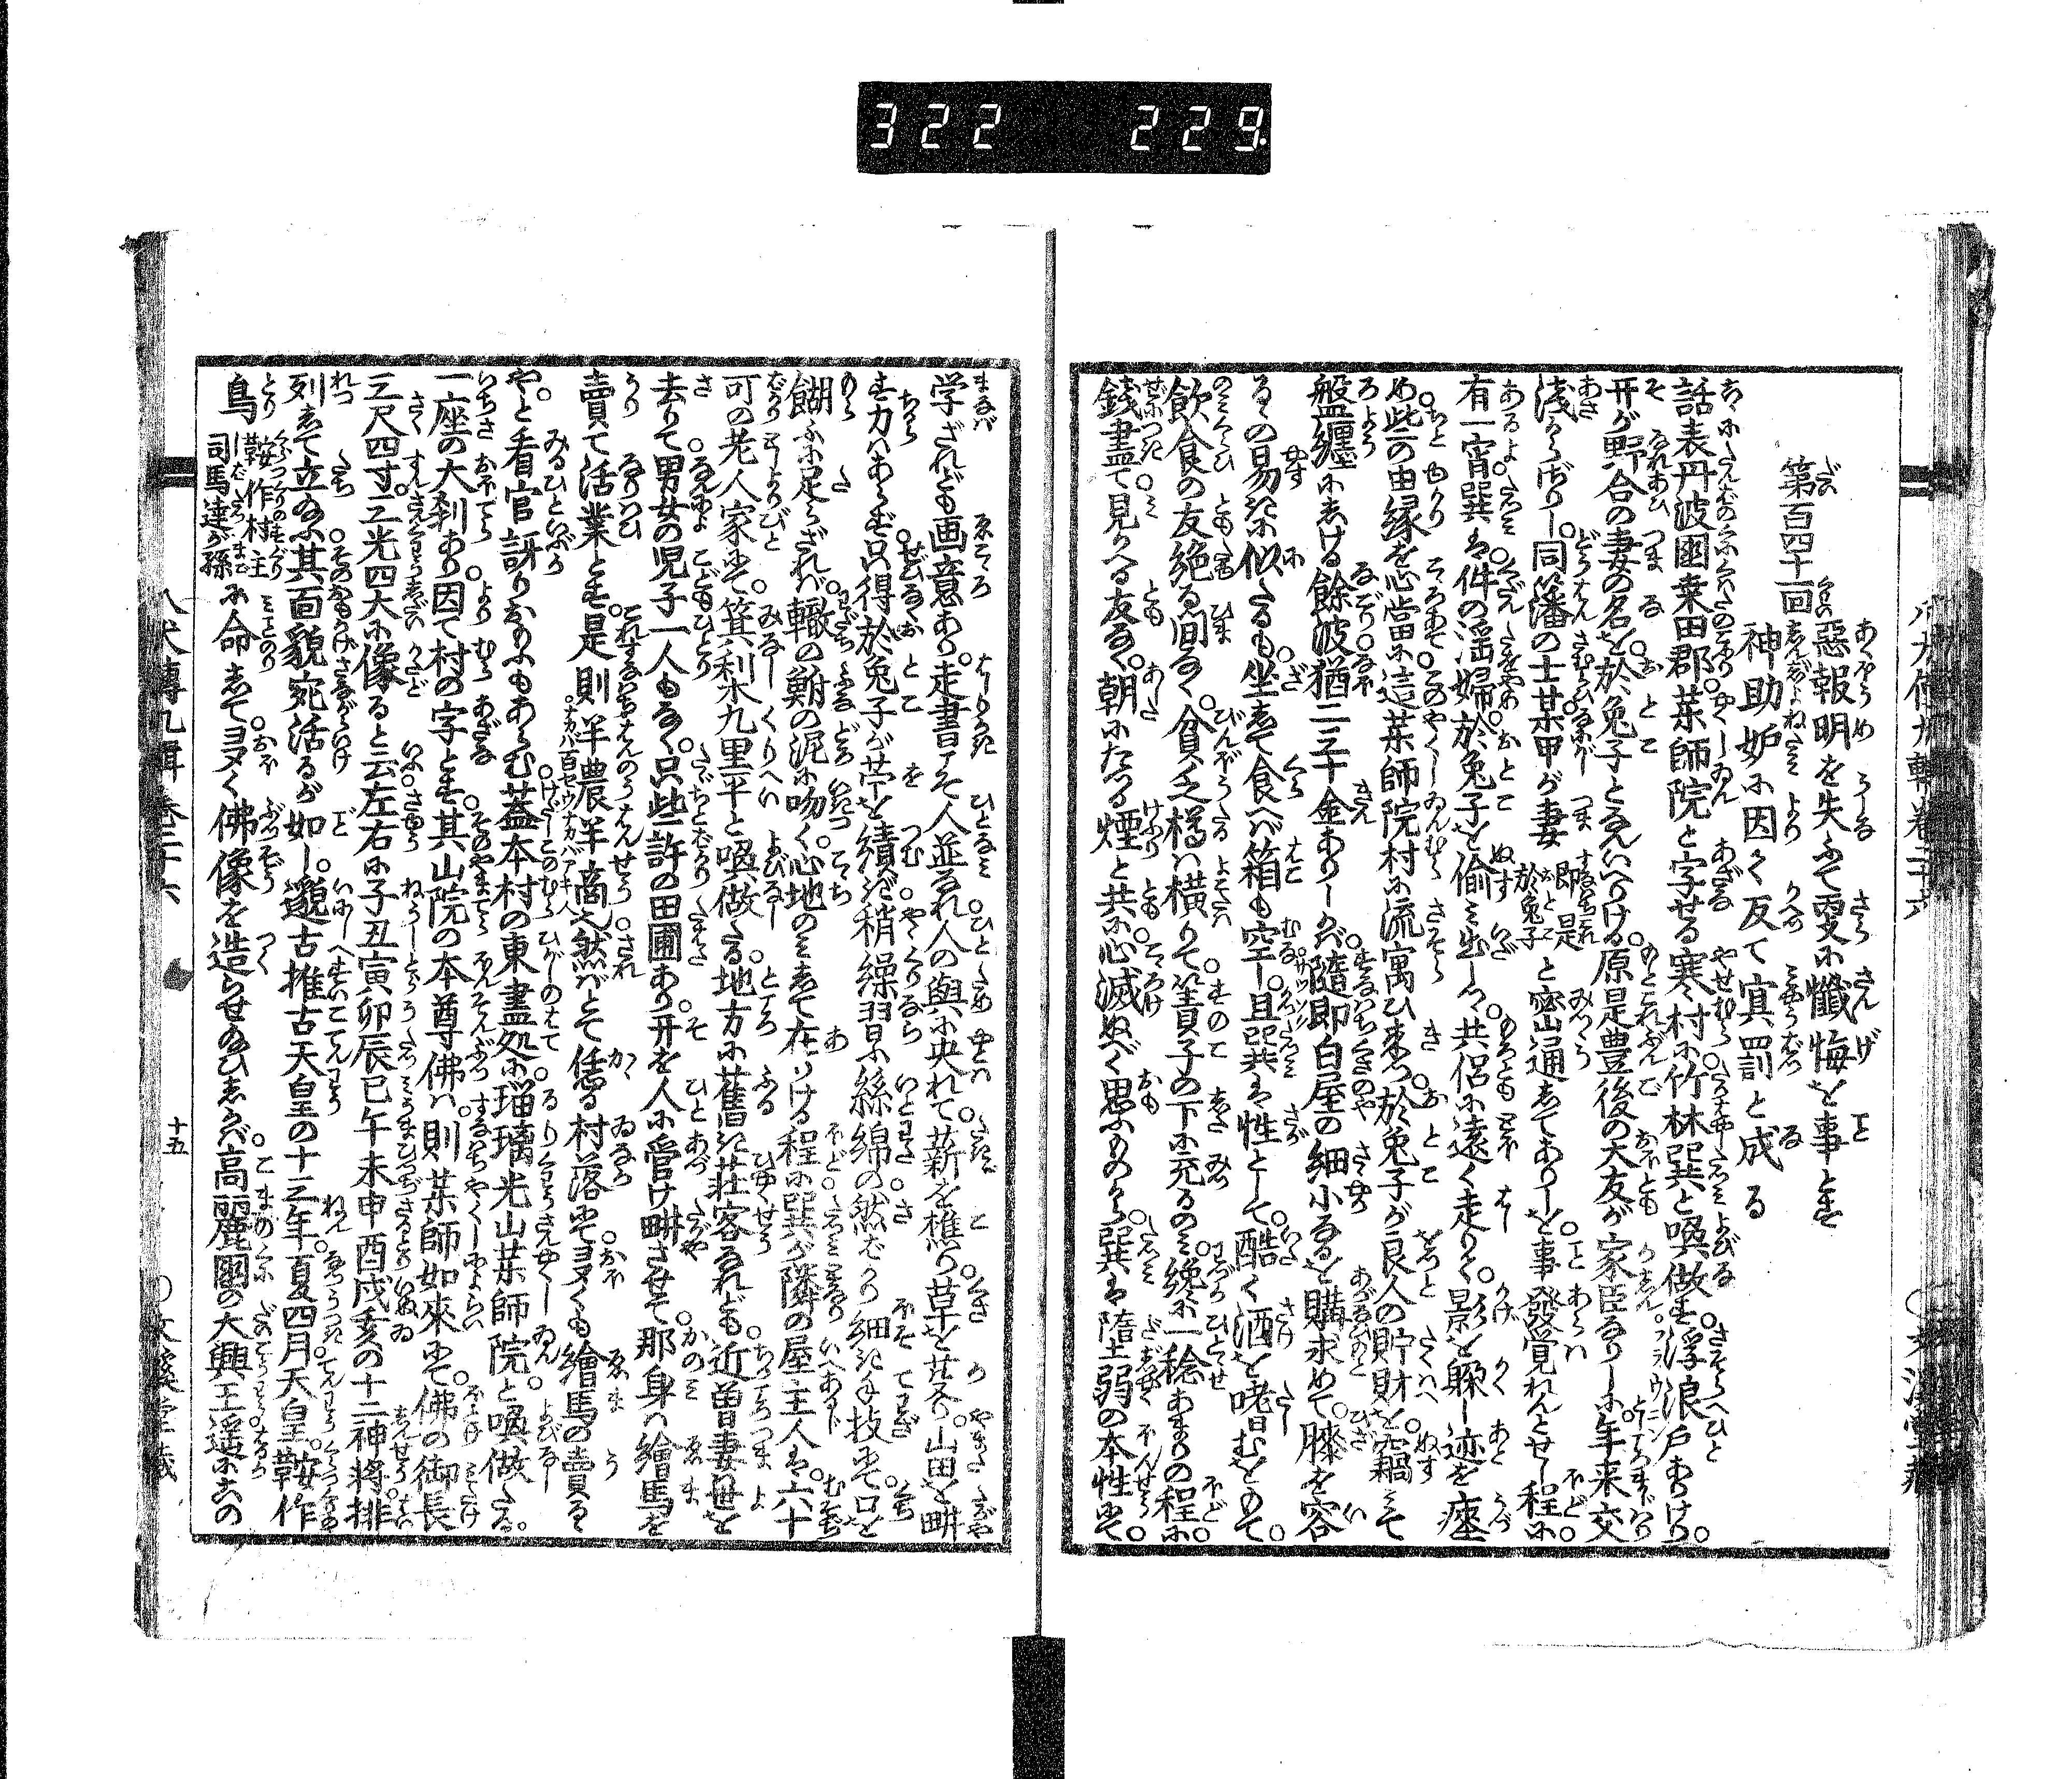 322 229
第百四十一回
惡報明を失ふて叟に懺悔を事とす
神助妒に因て反て冥罰と成る
話表丹波國桒田郡藥師院と字せる寒村に竹林巽と喚做す浮浪戸ありけり。
开が野合の妻の名を於兔子となんいへりける原是豊後の大友が家臣なりしに年来交
浅からざりし同籓の士某甲が妻 即是於兔子 と密通してありしを事發覚れんとせし程に。
有一宵巽は件の淫婦於兔子を偷み出しつゝ共侶に遠く走りて。影を躱し迹を瘞
め些の由縁を心當に這藥師院村に流寓ひ来つ於兔子が良人の貯財を竊みて
盤纏にしける餘波猶二三十金ありしかば隨即白屋の細小なるを購求めて膝を容
るゝの易きに似たるも坐して食へば箱も空し且巽は性として酷く酒を嗜むをもて。
飲食の友絶る间なく貧乏樽は横りて簀子の下に充るのみ纔に一稔あまりの程に。
錢盡て見かへる友なく朝にたつる煙と共に心滅ぬべく思ふものから巽は惰弱の本性にて。
学ざれども画意あり走書さへ人並なれ人の與に央れて薪を樵り草を芟り山田を畊
す力はあらず只得於兔子が苧を績だ稍繰習ふ絲綿の然ばかり細き手技にて口を
餬ふに足らざれば轍の鮒の泥に吻く心地のみして在りける程に巽が隣の屋主人は六十
可の老人家にて箕利水九里平と喚做たる地方に舊き莊客なれども近曾妻は世を
去りて男女の児子一人もなく只些許の田圃あり开を人に當け畊させて那身は繪馬を
賣て活業とす是則羊農羊商也然ばとて恁る村落にてヨヌくも繪馬の賣るゝ
や。と看官訝りおもふもあらむ蓋本村の東盡処に瑠璃光山藥師院と喚做たる。
一座の大刹あり因て村の字とす其山院の本尊佛は則藥師如來にて佛の御長
三尺四寸三光四大に像ると云左右に子丑寅卯辰巳午未申酉戌亥の十二神將排
列して立るに其面貌宛活るが如し。邈古推古天皇の十三年夏四月天皇。鞍作
鳥 鞍作村主司馬達が孫 に命してヨヌく佛像を造らせ給ひしかば高麗國の大興王遥にその
八犬傳九輯 卷三十六
十五